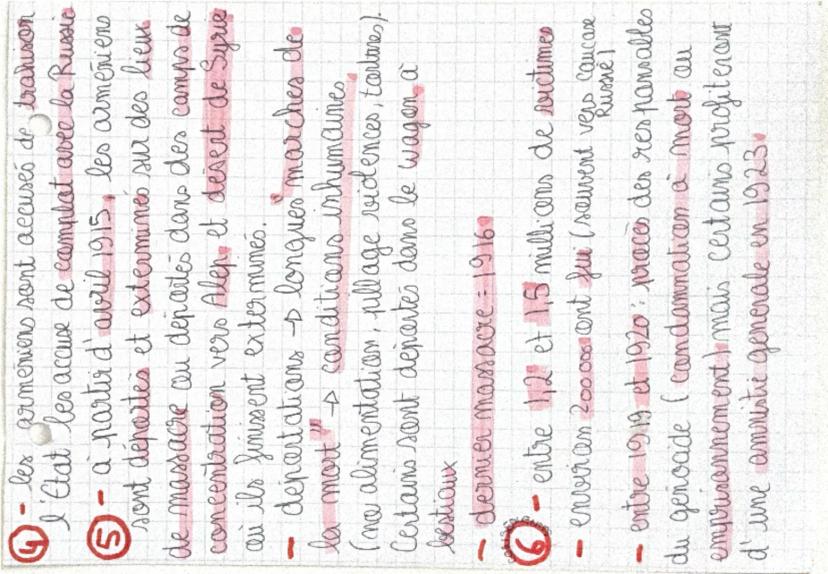 ④ - les arméniens sont accusés de trahison
l'État les accuse de complot avec la Russie
⑤ - à partir d'avril 1915, les arméniens
sont déportés et exterminés sur des lieux
de massacre ou déportés dans des camps de
concentration vers Alep et désert de Syrie
où ils finissent exterminés.
- déportations → longues "marches de
la mort" → conditions inhumaines
(no alimentation, pillage violences, tortures).
Certains sont déportés dans le wagon à
bestiaux
- dernier massacre = 1916
⑥ - entre 1,2 et 1,5 millions de victimes
- environ 200000 ont fui (souvent vers Caucase
Russie)
- entre 1919 et 1920 : procès des responsables
du génocide (condamnation à mort ou
emprisonnement) mais certains profiteront
d'une amnistie générale en 1923.